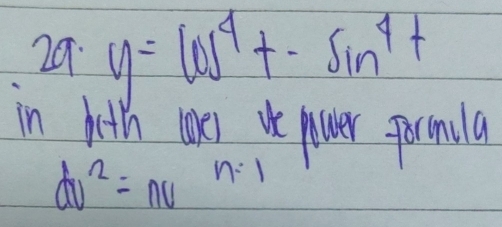 29. y = cos⁴ t - sin⁴ t
in both cases use power formula
du² = nu n-1